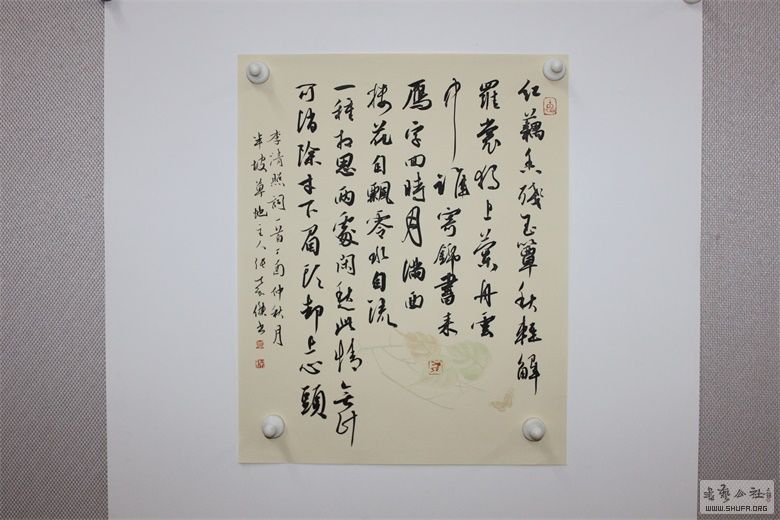 红藕香残玉簟秋轻解
羅裳独上蘭舟雲
中誰寄錦書来
雁字回時月满西
楼花自飄零水自流
一種相思两處闲愁此情无计
可消除才下眉头却上心頭
李清照詞一首丁酉仲秋月
半坡草地主人张
书艺公社
WWW.SHUFA.ORG